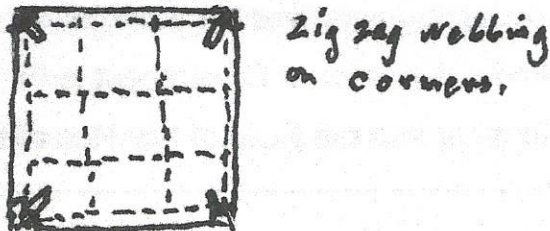 Zig zag webbing
on corners.